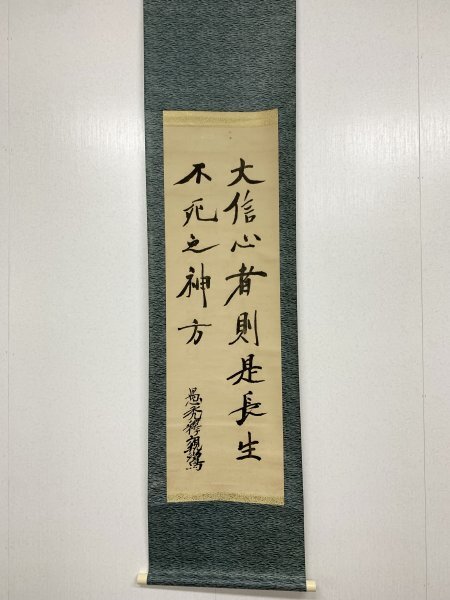 大信心者則是長生
不死之神方
愚禿釋親鸞